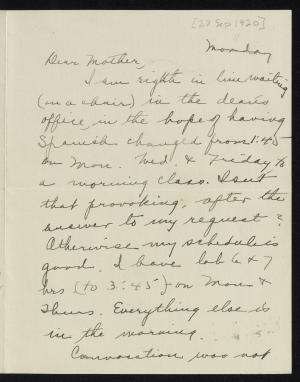 [27 Sep 1920]
Monday
Dear Mother,
I am eighth in line waiting
(on a chair) in the dean's
office in the hope of having
Spanish changed from 1:45
on Mon. Wed. & Friday to
a morning class. Isn't
that provoking after the
answer to my request?
Otherwise my schedule is
good. I have lab 6 & 7
hrs (to 3:45) on Mon &
Thurs. Everything else is
in the morning.
Convocation was not